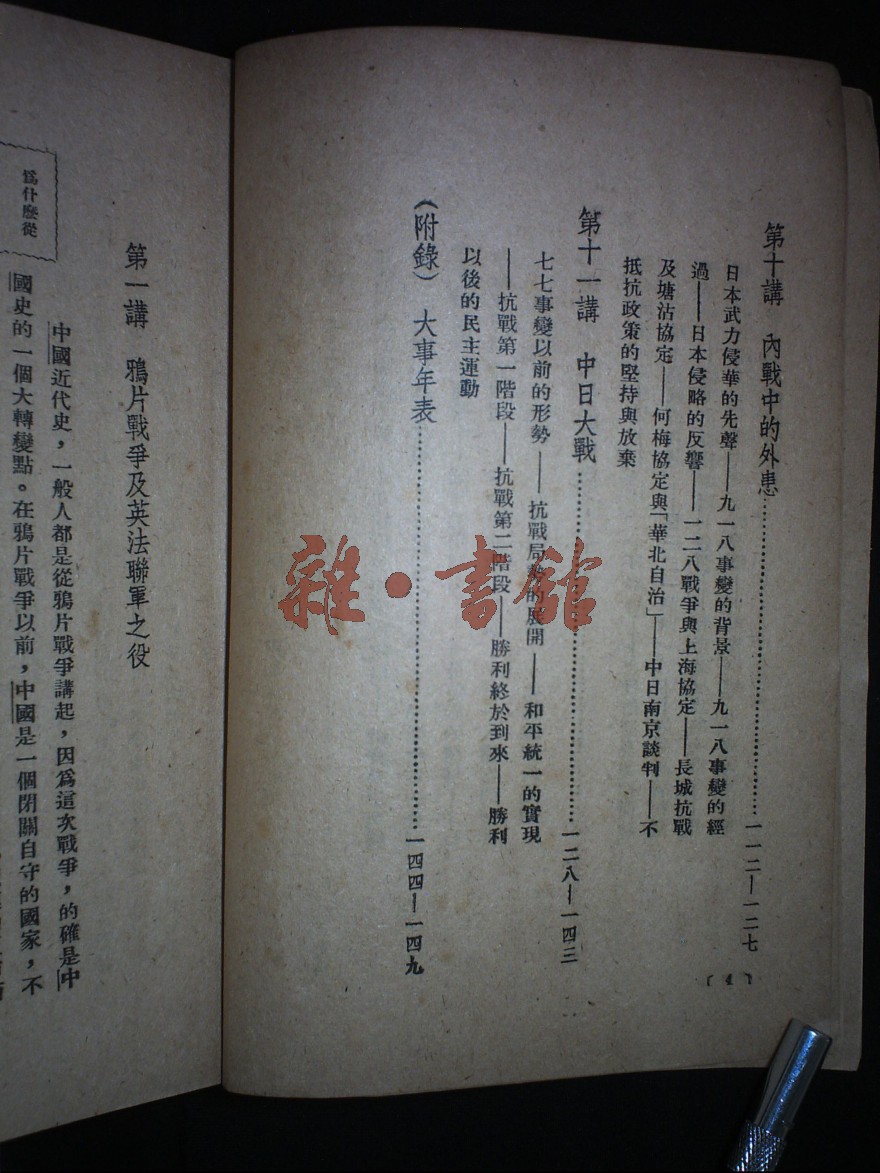 第十講　內戰中的外患…………一一二—一二七
日本武力侵華的先聲——九一八事變的背景——九一八事變的經
過——日本侵略的反響——一二八戰爭與上海協定——長城抗戰
及塘沽協定——何梅協定與「華北自治」——中日南京談判——不
抵抗政策的堅持與放棄
第十一講　中日大戰…………一二八—一四三
七七事變以前的形勢——抗戰局勢的展開——和平統一的實現
——抗戰第一階段——抗戰第二階段——勝利終於到來——勝利
以後的民主運動
（附錄）　大事年表…………一四四—一四九
〔4〕
雜·書館
第一講　鴉片戰爭及英法聯軍之役
爲什麽從
中國近代史，一般人都是從鴉片戰爭講起，因爲這次戰爭，的確是中
國史的一個大轉變點。在鴉片戰爭以前，中國是一個閉關自守的國家，不